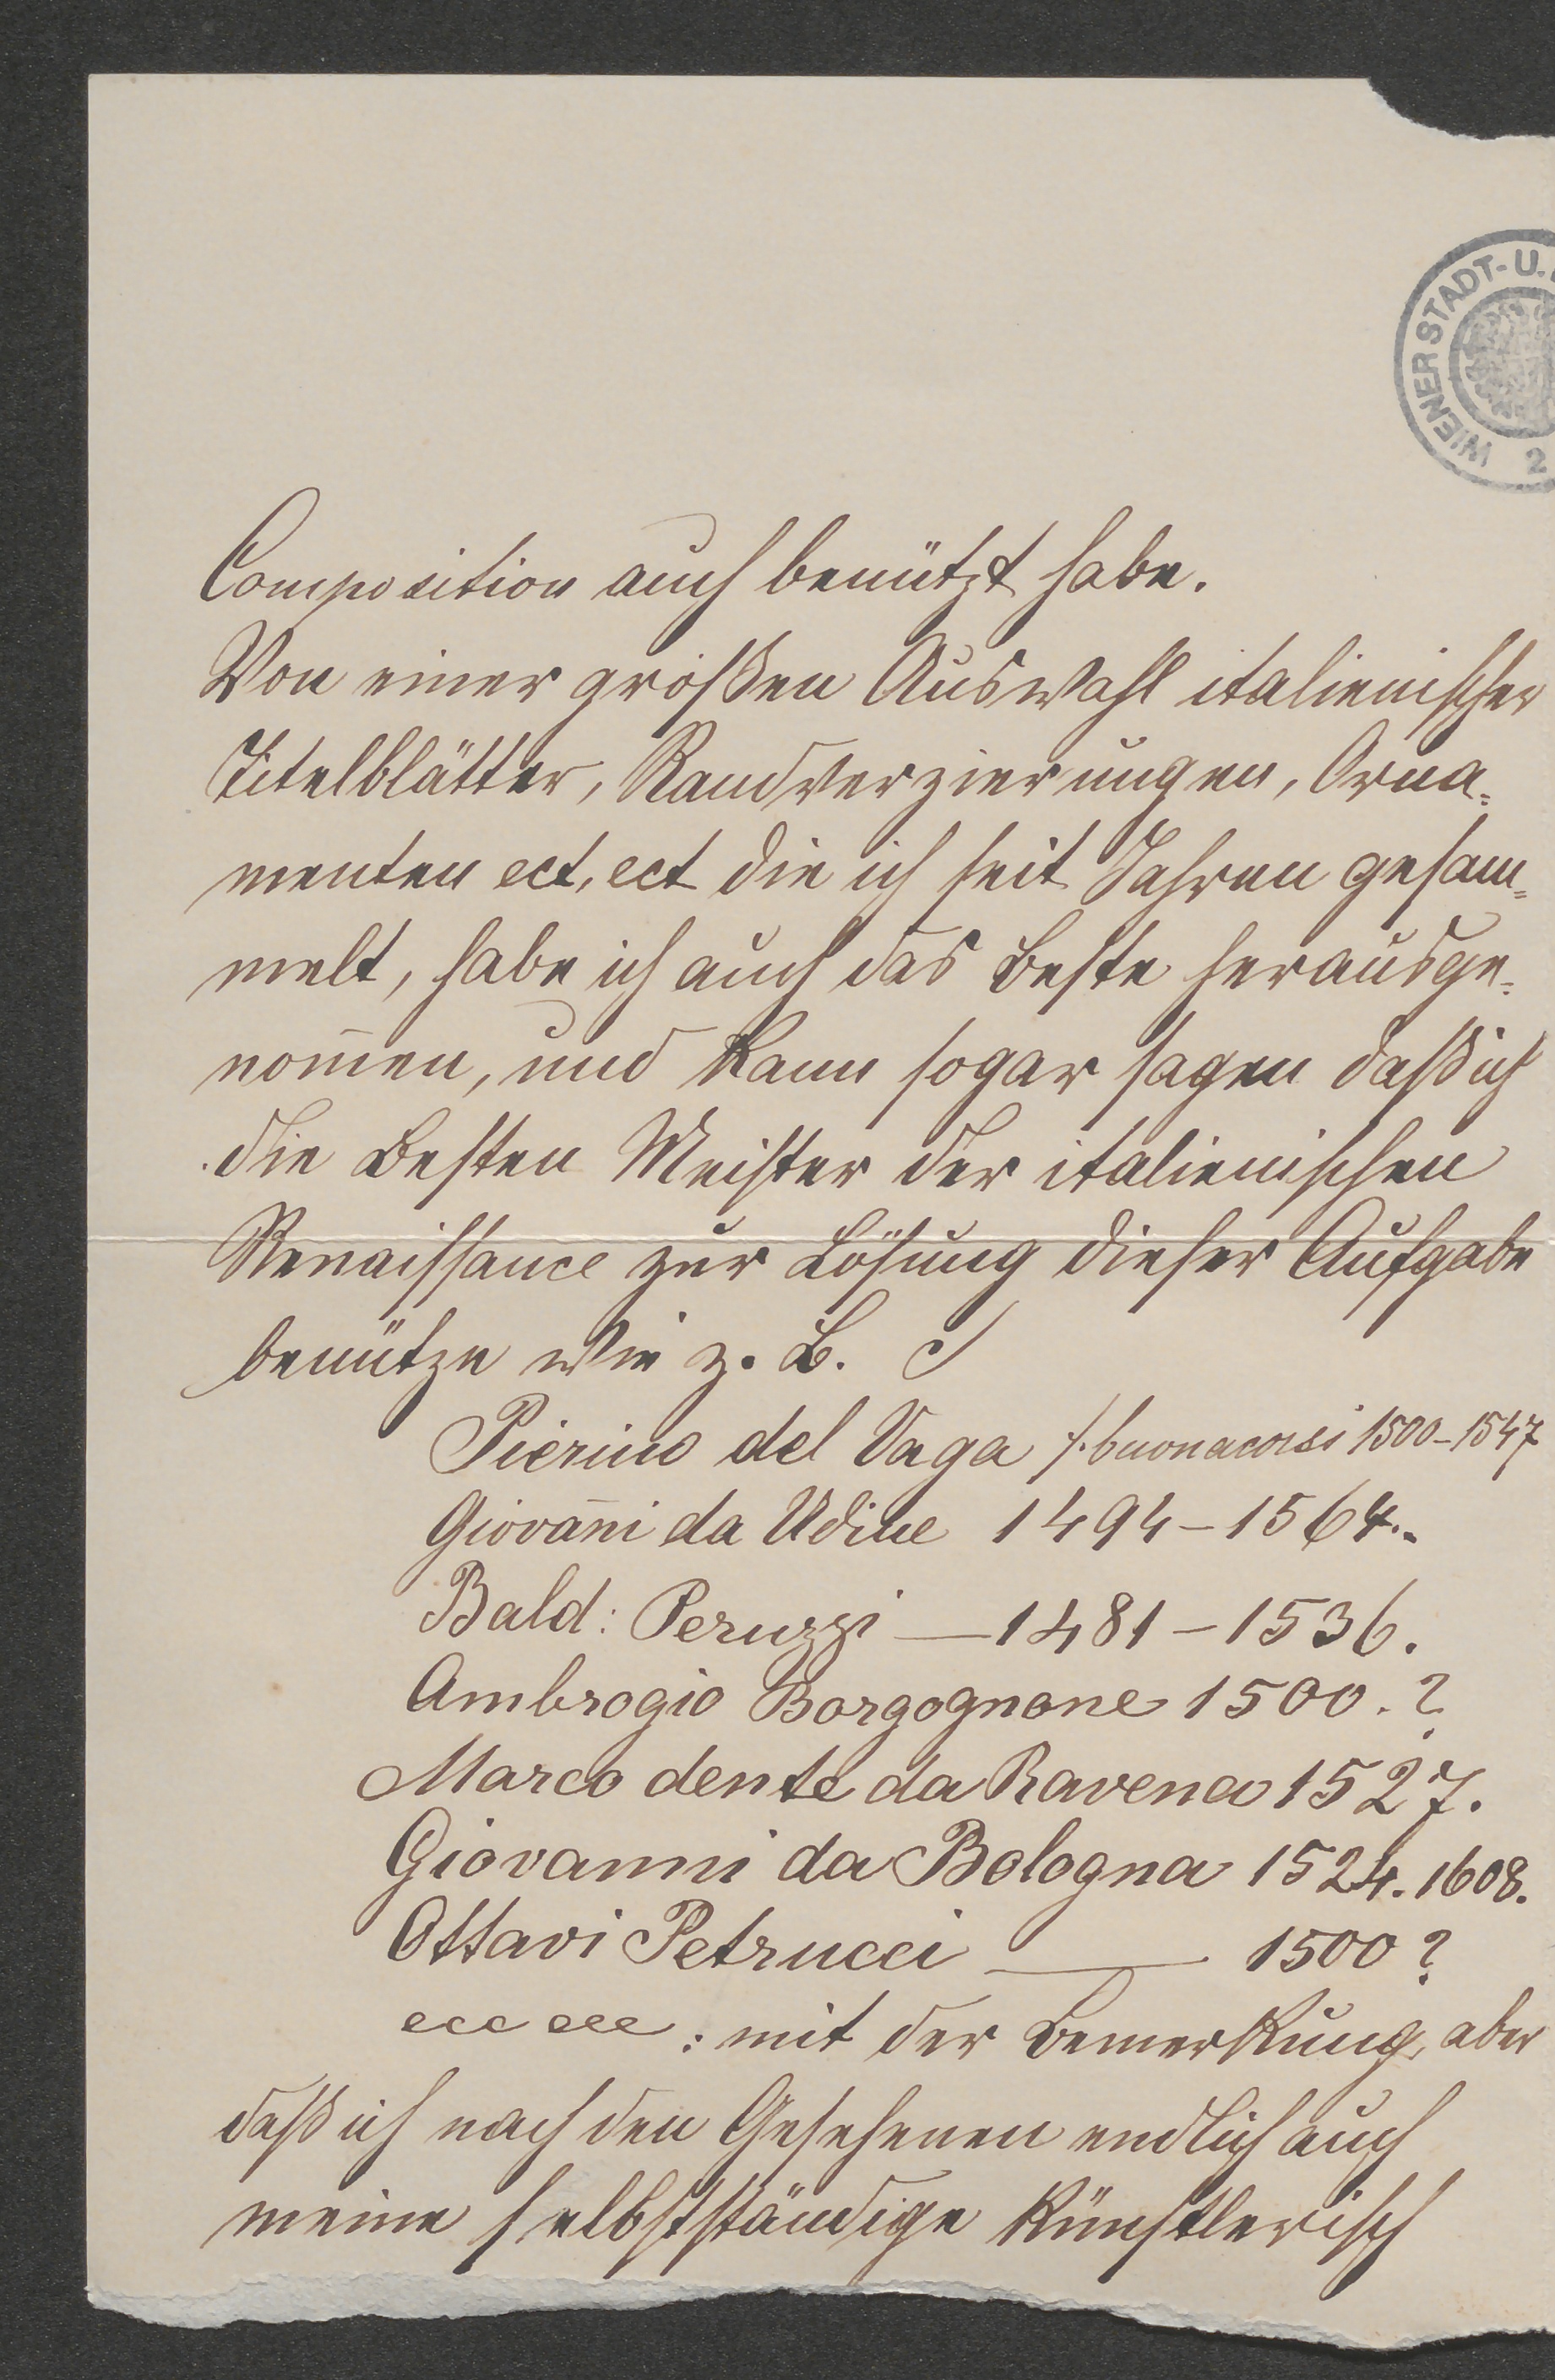 WIENER STADT- U.
2
Composition auch benützt habe.
Von einer großen Auswahl italienischer
Titelblätter, Randverzierungen, Orna=
menten ect, ect die ich seit Jahren gesam=
melt, habe ich auch das Beste herausge=
nom̅en, und kann sogar sagen daß ich
die Besten Meister der italienischen
Renaissance zur Lösung dieser Aufgabe
benütze wie z. B.
Pierino del Vaga /. buonacorsi 1500-1547
Giovan̅i da Udine 1494-1564.
Bald: Peruzzi — 1481-1536.
Ambrogio Borgognone 1500.?
Marco dente da Ravena 1527.
Giovanni da Bologna 1524. 1608.
Ottavi Petrucci — 1500?
: mit der Bemerkung, aber
daß ich nach den Gesehenen endlich auch
meine selbstständige künstlerisch